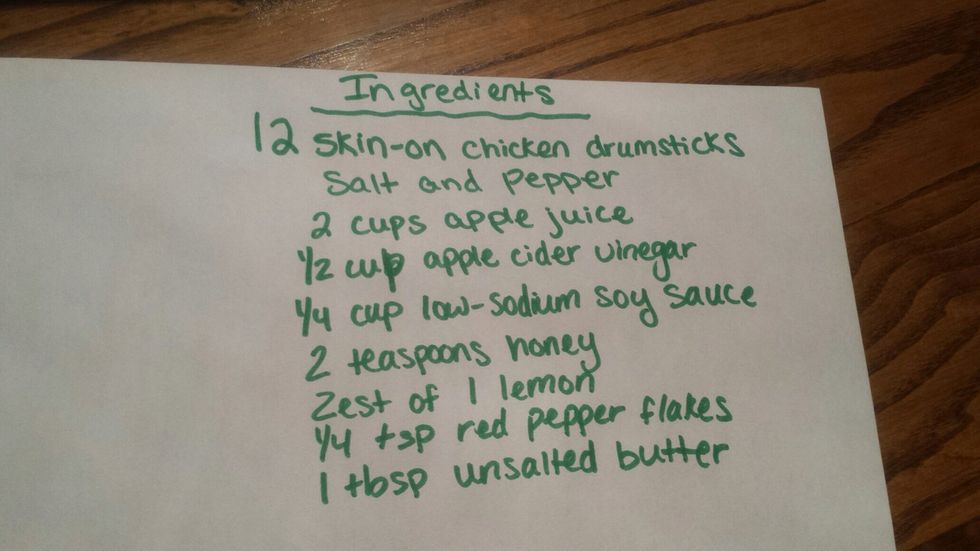 Ingredients
12 skin-on chicken drumsticks
Salt and Pepper
2 cups apple juice
1/2 cup apple cider vinegar
1/4 cup low-sodium soy sauce
2 teaspoons honey
Zest of 1 lemon
1/4 tsp red pepper flakes
1 tbsp unsalted butter